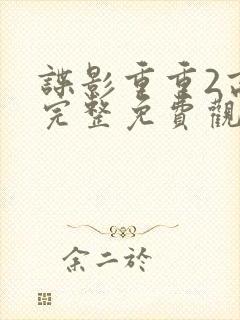 諜影重重2高
完整免費觀
余二於